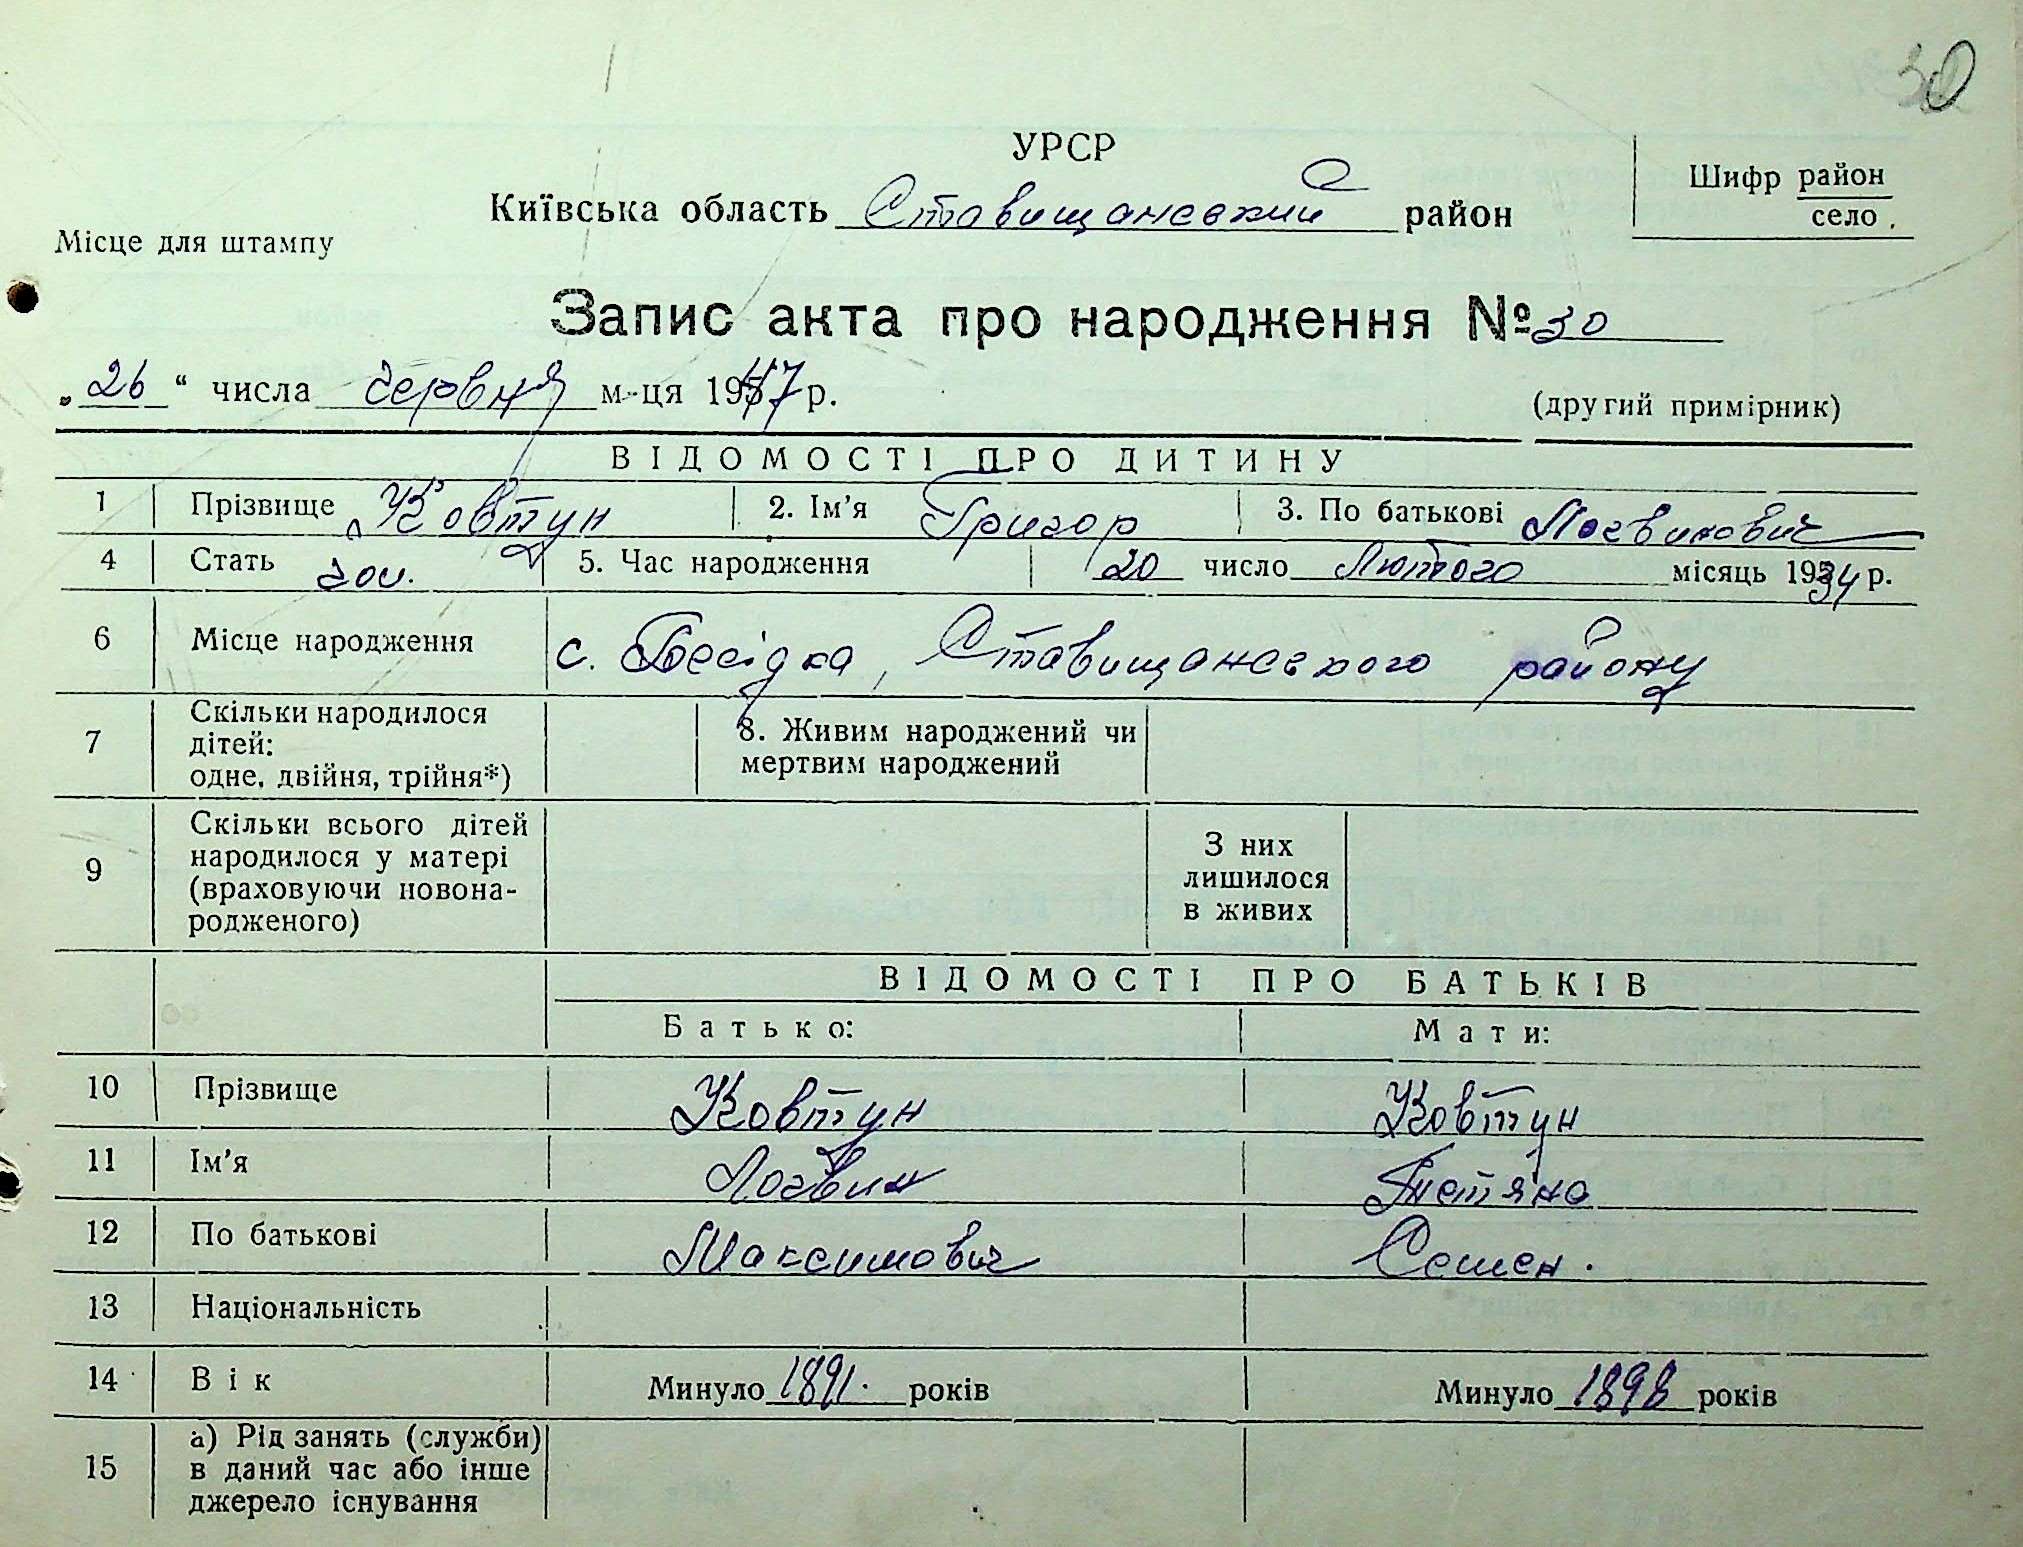 30
УРСР
Київська область Ставищанський район
Шифр район
село.
Місце для штампу
Запис акта про народження № 30
„26“ числа червня м-ця 1947 р.
(другий примірник)
ВІДОМОСТІ ПРО ДИТИНУ
1 Прізвище Ковтун 2. Ім'я Григор 3. По батькові Логвинович
4 Стать чол. 5. Час народження 20 число Лютого місяць 1934 р.
6 Місце народження с. Бесідка, Ставищанського району
7 Скільки народилося
дітей:
одне, двійня, трійня*)
8. Живим народжений чи
мертвим народжений
9 Скільки всього дітей
народилося у матері
(враховуючи новона-
родженого)
З них
лишилося
в живих
ВІДОМОСТІ ПРО БАТЬКІВ
Батько: Мати:
10 Прізвище Ковтун Ковтун
11 Ім'я Логвин Тетяна
12 По батькові Максимович Семен.
13 Національність
14 Вік Минуло 1891. років Минуло 1898 років
15 а) Рід занять (служби)
в даний час або інше
джерело існування